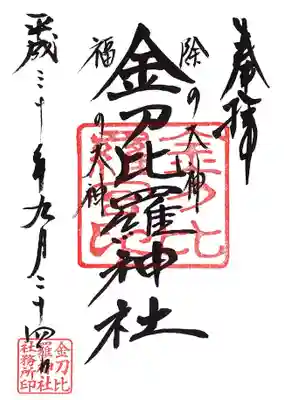 奉拝
除の大神
金刀比羅神社
福の大神
平成三十年九月二十四日
金刀比
羅神社
社務所印